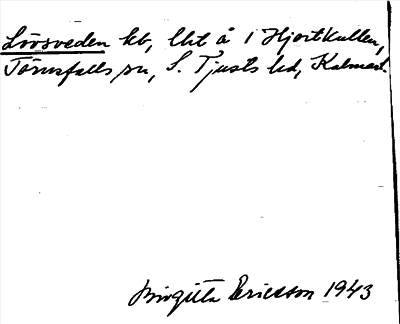 Lövsveden kb, lht å 1 Hjortkullen,
Törnsfalls sn, S. Tjusts hd, Kalmar l.
Birgitta Ericsson 1943